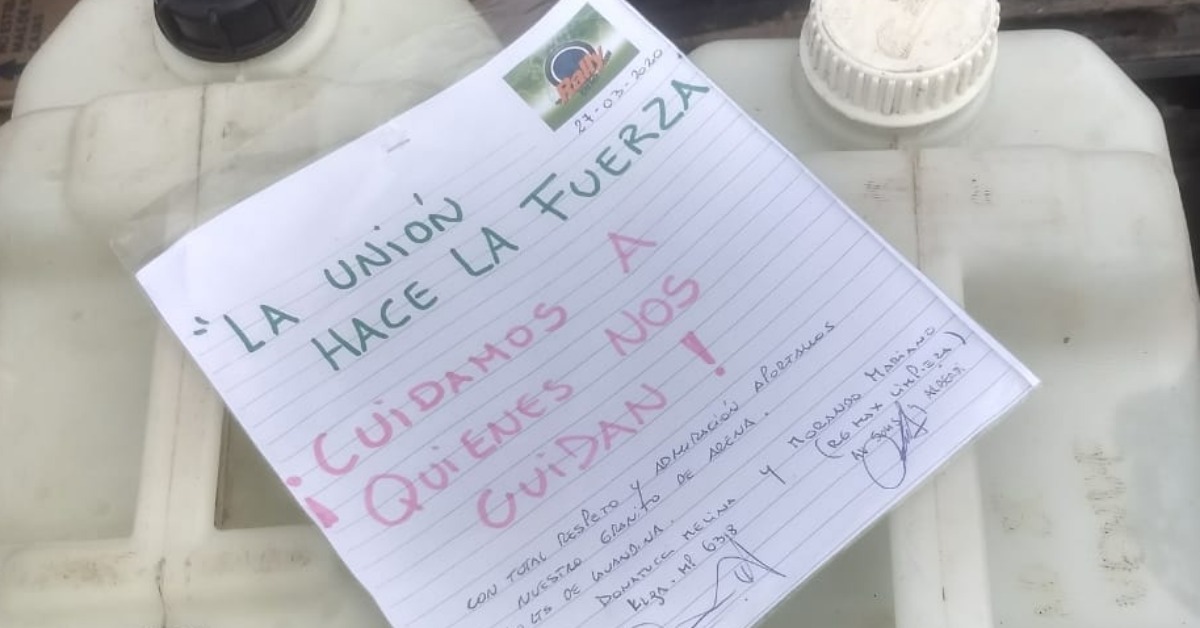 Rally
27-03-2020
"LA UNIÓN
HACE LA FUERZA
¡CUIDAMOS A
QUIENES NOS
CUIDAN!
CON TOTAL RESPETO Y ADMIRACIÓN APORTAMOS
NUESTRO GRANITO DE ARENA.
LTS DE LAVANDINA.
DONATUCCI MELINA Y MORANDO MARIANO
KLGA. MP 6318
(RG MAX LIMPIEZA)
ALBERDI